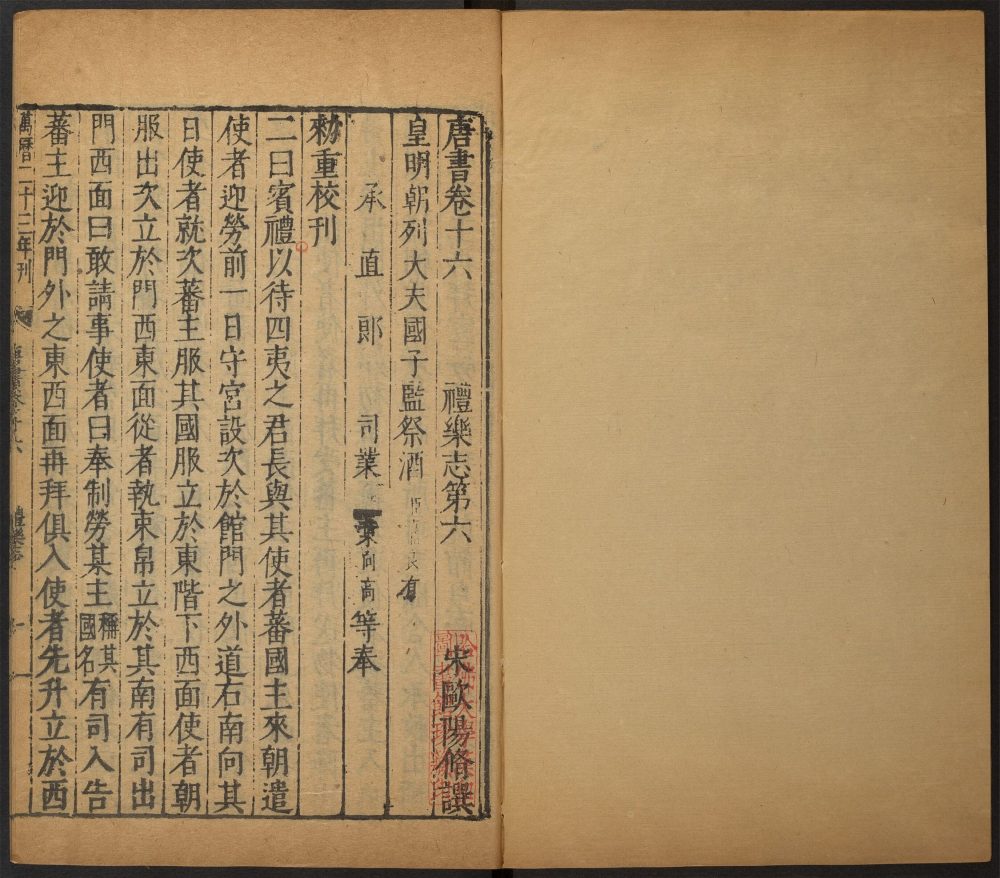 唐書卷十六 禮樂志第六 宋歐陽脩譔
皇明朝列大夫國子監祭酒
承直郎司業 葉向高等奉
勑重校刊
二曰賓禮以待四夷之君長與其使者蕃國主來朝遣
使者迎勞前一日守宮設次於館門之外道右南向其
日使者就次蕃主服其國服立於東階下西面使者朝
服出次立於門西東面從者執束帛立於其南有司出
門西面曰敢請事使者曰奉制勞某主稱其國名有司入告
蕃主迎於門外之東西面再拜俱入使者先升立於西
萬曆二十三年刊 唐書卷十六 禮樂志 一